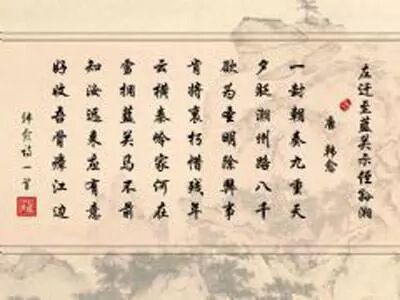 左迁至蓝关示侄孙湘
唐 韩愈
一封朝奏九重天
夕贬潮州路八千
欲为圣明除弊事
肯将衰朽惜残年
云横秦岭家何在
雪拥蓝关马不前
知汝远来应有意
好收吾骨瘴江边
韩愈诗一首